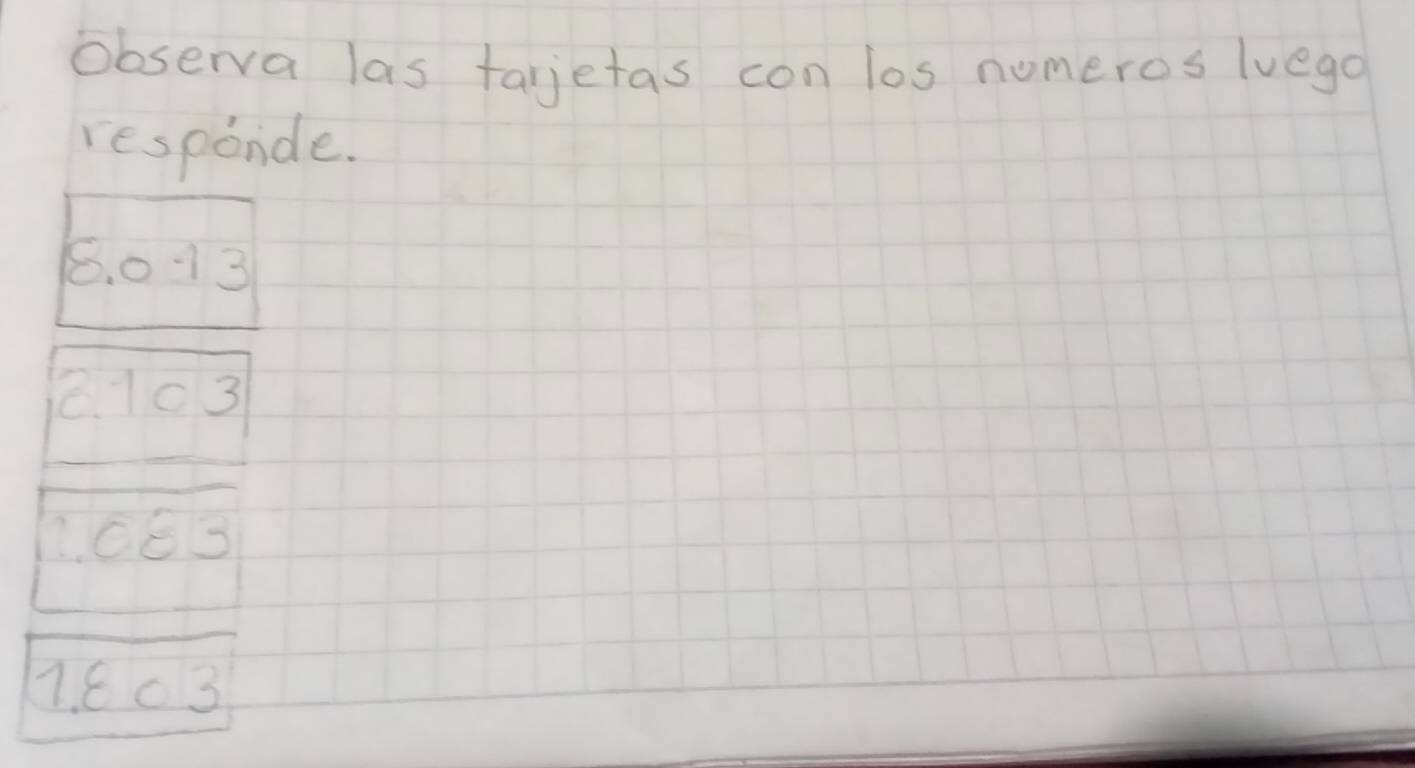 Observa las tarjetas con los numeros luego
respónde.
8.013
2.103
1.083
1.803